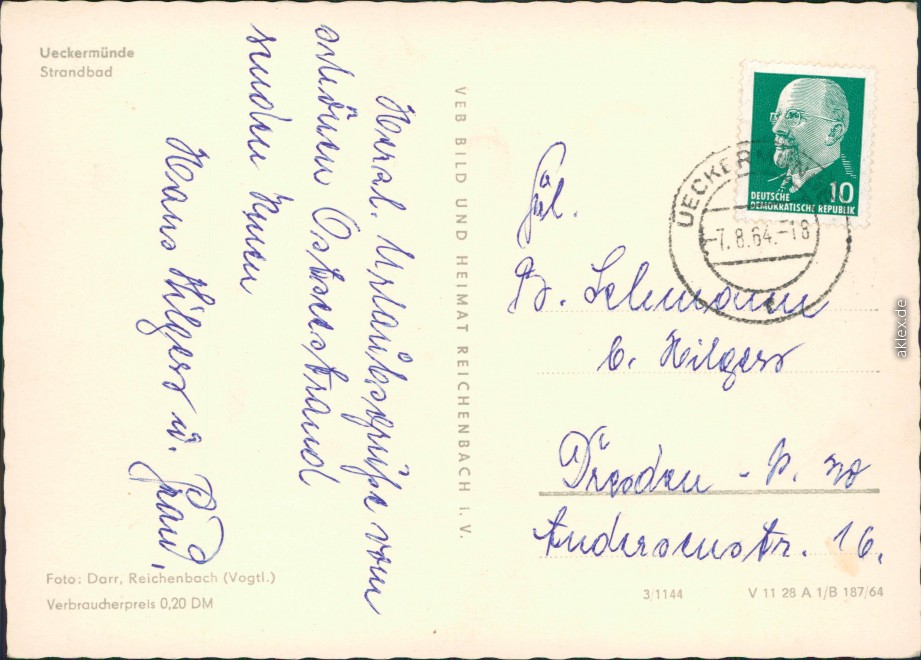 Ueckermünde
Strandbad
Herzl. Urlaubsgrüße vom
schönen Ostseestrand
senden Ihnen
Hans Hilgers u. Frau.
VEB BILD UND HEIMAT REICHENBACH I. V.
DEUTSCHE
DEMOKRATISCHE REPUBLIK
10
UECKERMÜNDE
-7.8.64.-18
Frl.
B. Lehmann
b. Hilgers
Dresden - A. 20
Andersenstr. 16.
Foto: Darr, Reichenbach (Vogtl.)
Verbraucherpreis 0,20 DM
3/1144
V 11 28 A 1/B 187/64
aklex.de